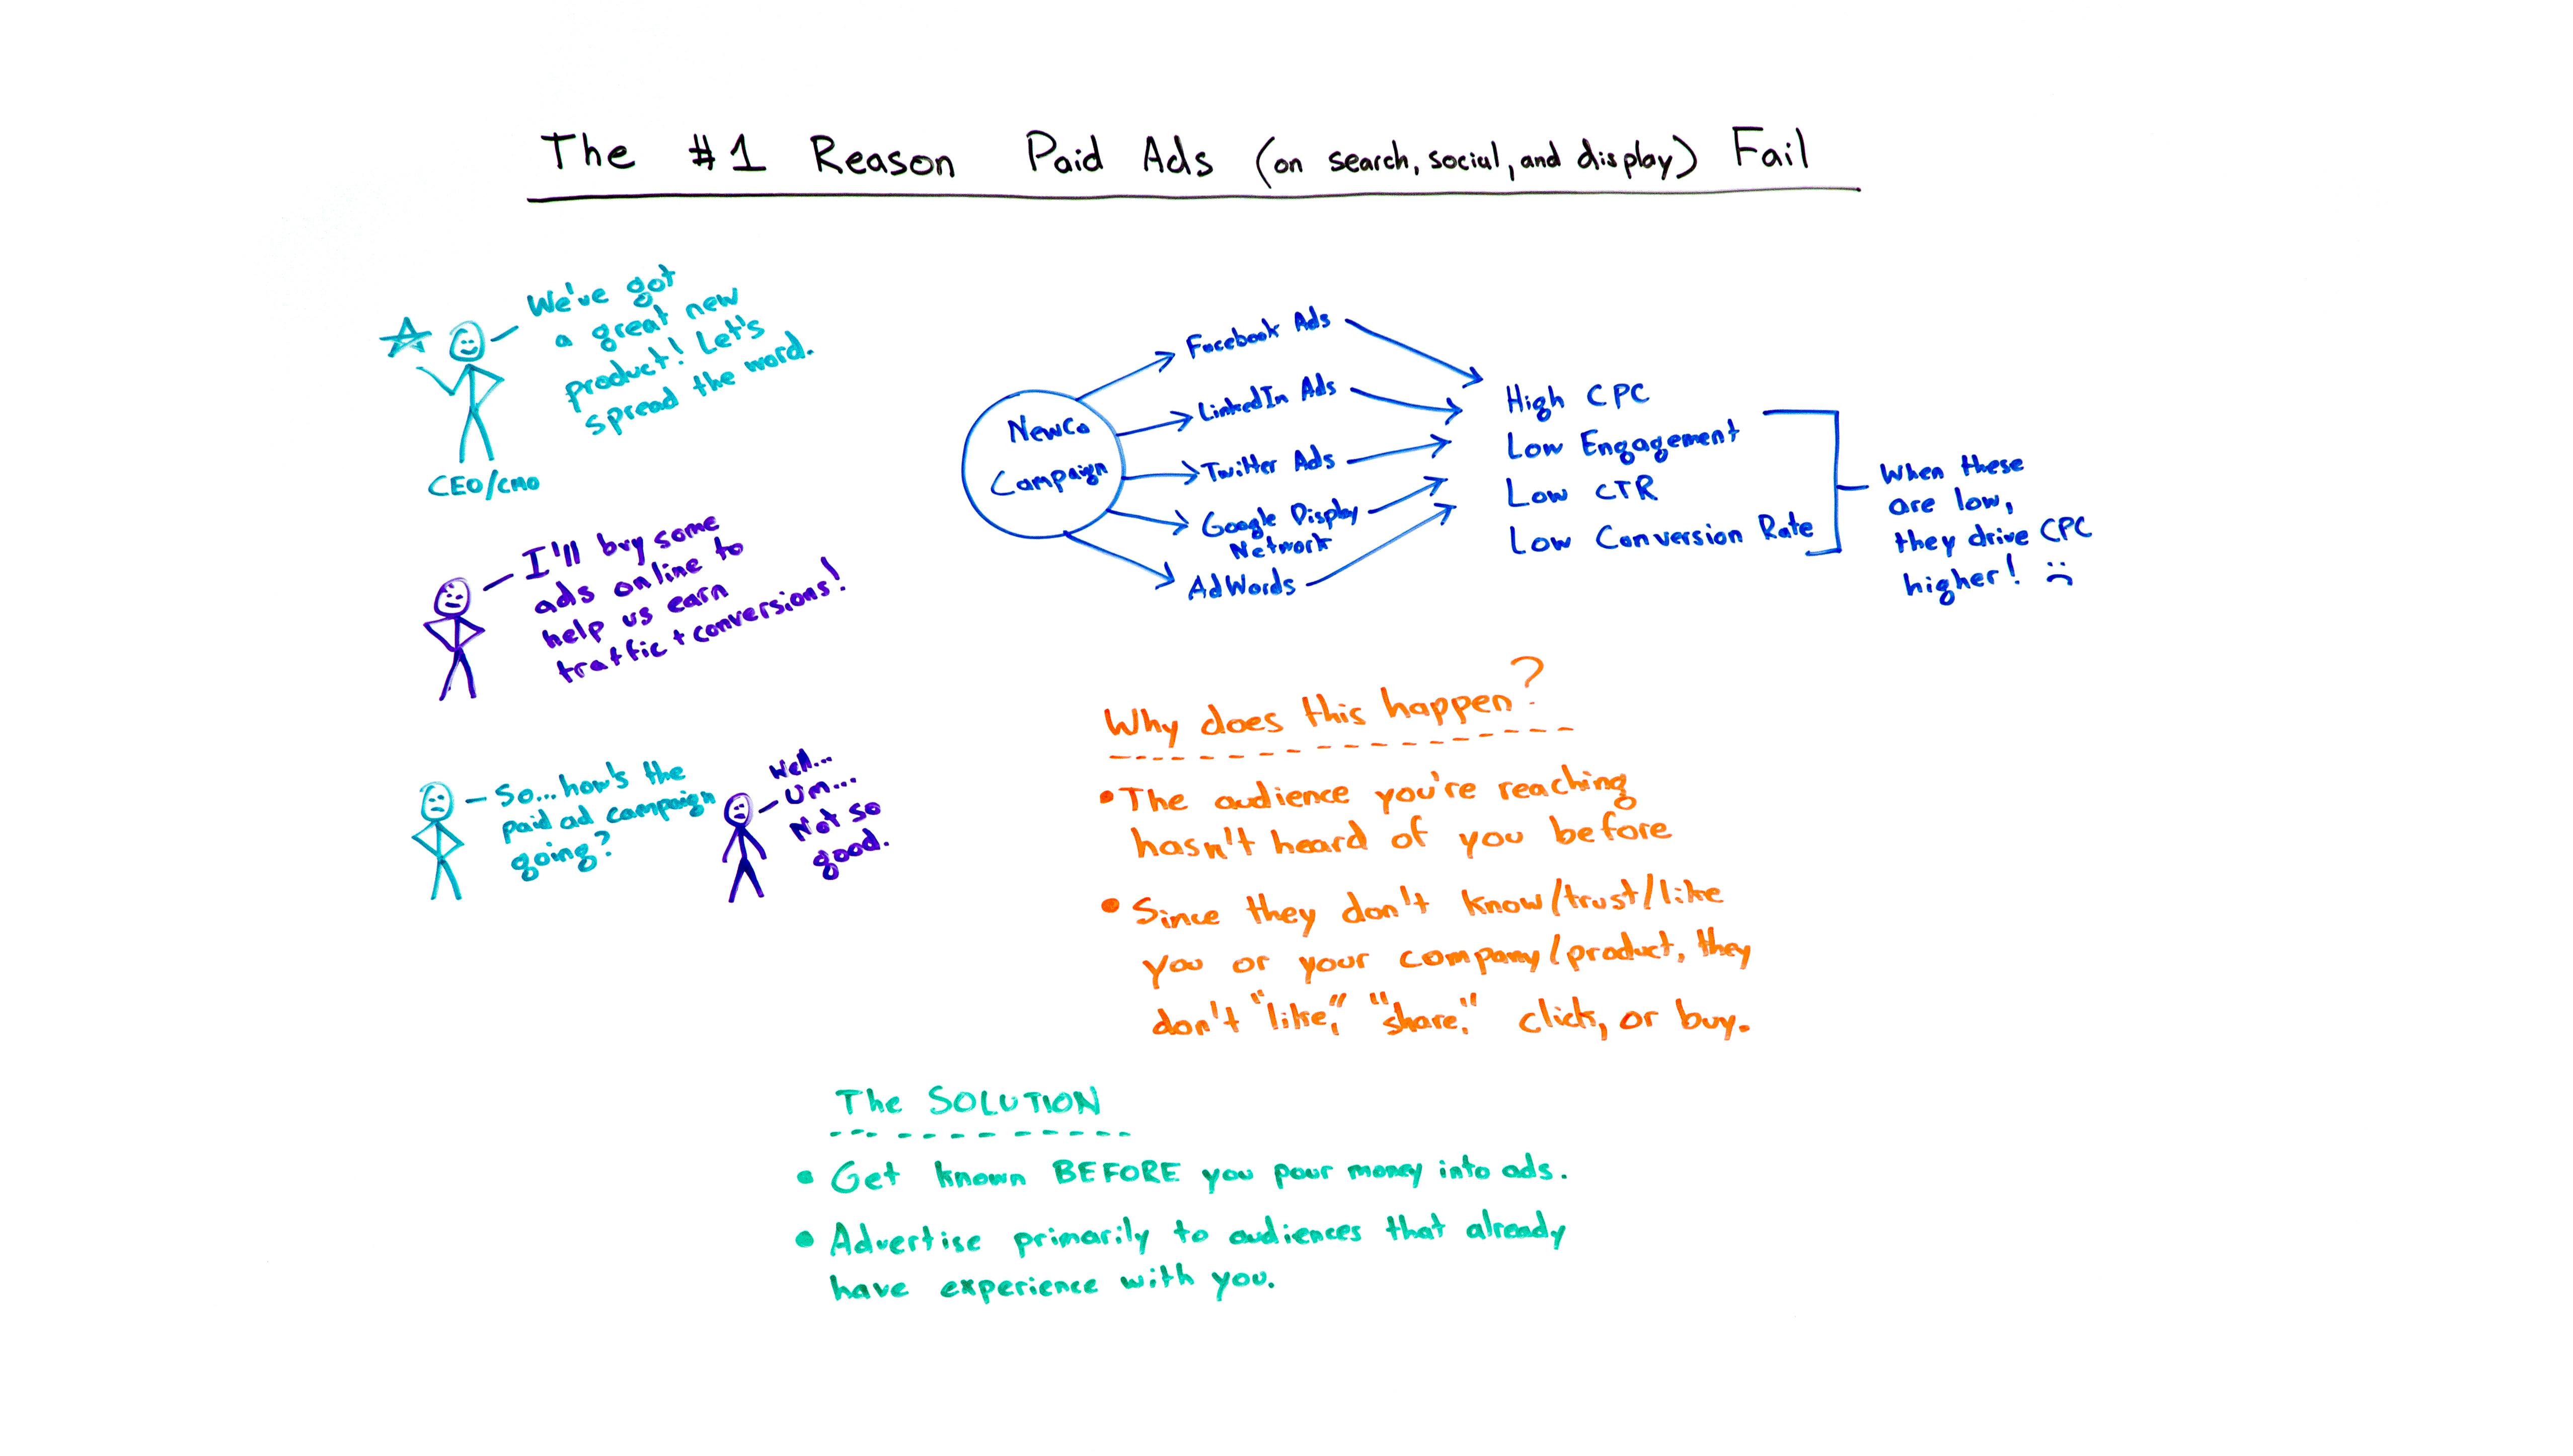 The #1 Reason Paid Ads (on search, social, and display) Fail
We've got
a great new
product! Let's
spread the word.
CEO/CMO
I'll buy some
ads online to
help us earn
traffic + conversions!
So...how's the
paid ad campaign
going?
Well...
Um...
Not so
good.
NewCo
Campaign
Facebook Ads
LinkedIn Ads
Twitter Ads
Google Display
Network
AdWords
High CPC
Low Engagement
Low CTR
Low Conversion Rate
When these
are low,
they drive CPC
higher! :(
Why does this happen?
• The audience you're reaching
hasn't heard of you before
• Since they don't know/trust/like
you or your company/product, they
don't "like," "share," click, or buy.
The SOLUTION
• Get known BEFORE you pour money into ads.
• Advertise primarily to audiences that already
have experience with you.